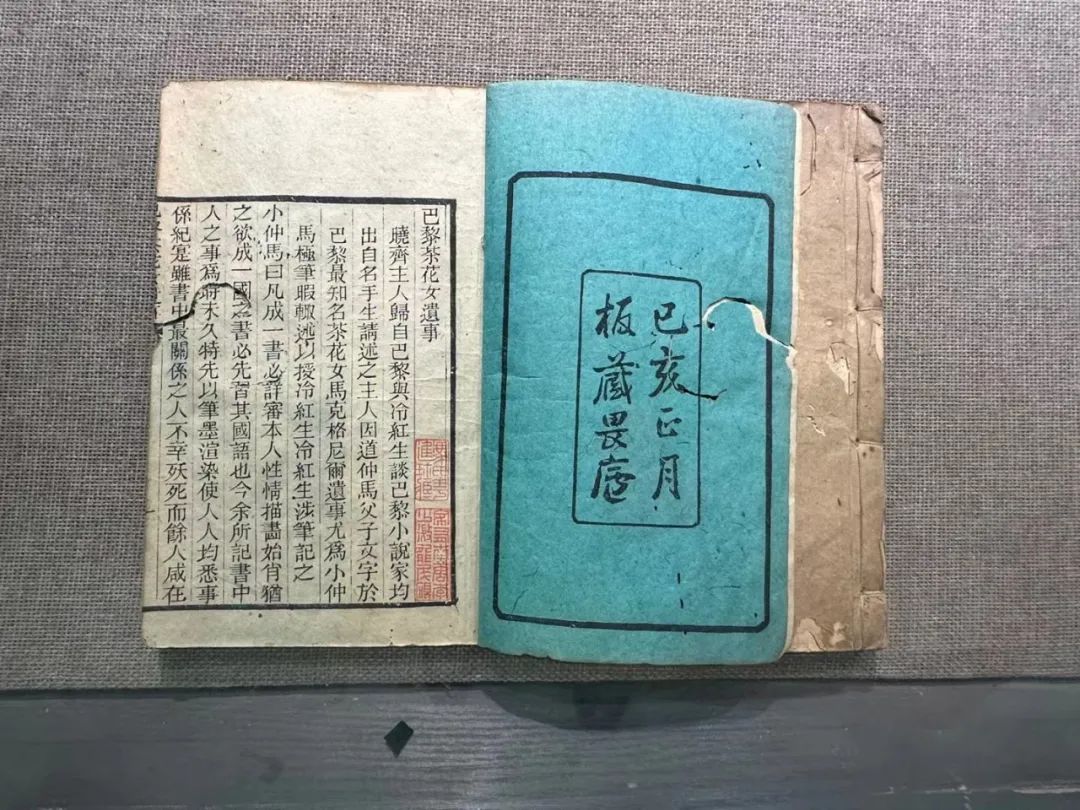 己亥正月
板藏畏廬
巴黎茶花女遺事
曉齊主人歸自巴黎與冷紅生談巴黎小說家均
出自名手生請述之主人因道仲馬父子文字於
巴黎最知名茶花女馬克格尼爾遺事尤爲小仲
馬極筆暇輙述以授冷紅生冷紅生涉筆記之
小仲馬曰凡成一書必詳審本人性情描畫始肖猶
之欲成一國之書必先習其國語也今余所記書中
人之事爲時未久特先以筆墨渲染使人人均悉事
係紀寔雖書中最關係之人不幸殀死而餘人咸在